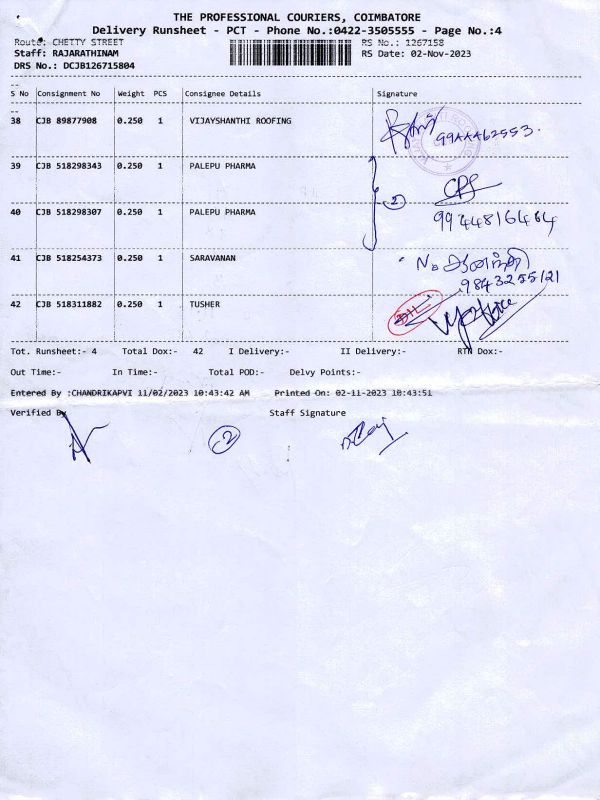 THE PROFESSIONAL COURIERS, COIMBATORE
Delivery Runsheet - PCT - Phone No.:0422-3505555 - Page No.:4
Route: CHETTY STREET RS No.: 1267158
Staff: RAJARATHINAM RS Date: 02-Nov-2023
DRS No.: DCJB126715804
S No Consignment No Weight PCS Consignee Details Signature
38 CJB 89877908 0.250 1 VIJAYSHANTHI ROOFING
39 CJB 518298343 0.250 1 PALEPU PHARMA
2
40 CJB 518298307 0.250 1 PALEPU PHARMA 9944816464
41 CJB 518254373 0.250 1 SARAVANAN
9843255121
42 CJB 518311882 0.250 1 TUSHER
Tot. Runsheet:- 4 Total Dox:- 42 I Delivery:- II Delivery:- RTN Dox:-
Out Time:- In Time:- Total POD:- Delvy Points:-
Entered By :CHANDRIKAPVI 11/02/2023 10:43:42 AM Printed On: 02-11-2023 10:43:51
Verified By Staff Signature
2